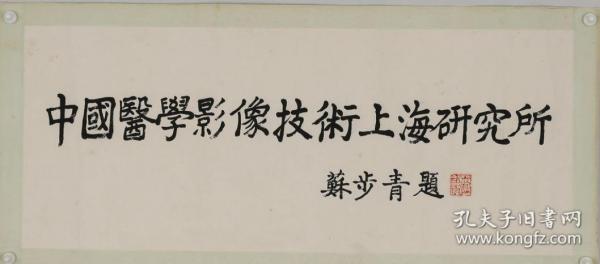 中國醫學影像技術上海研究所
蘇步青題
孔夫子旧书网
www.kongfz.com